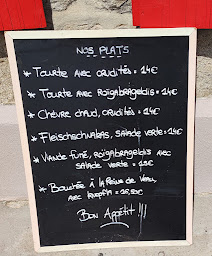 NOS PLATS
* Tourte avec crudités = 14€
* Tourte avec Roïgabrageldis = 14€
* Chèvre chaud, crudités = 14€
* Fleischschnakas, salade verte = 14€
* Viande fumé, roïgabrageldis avec
salade verte = 15€
* Bouchée à la Reine de Veau,
avec knepfla = 15,50€
Bon Appétit !!!